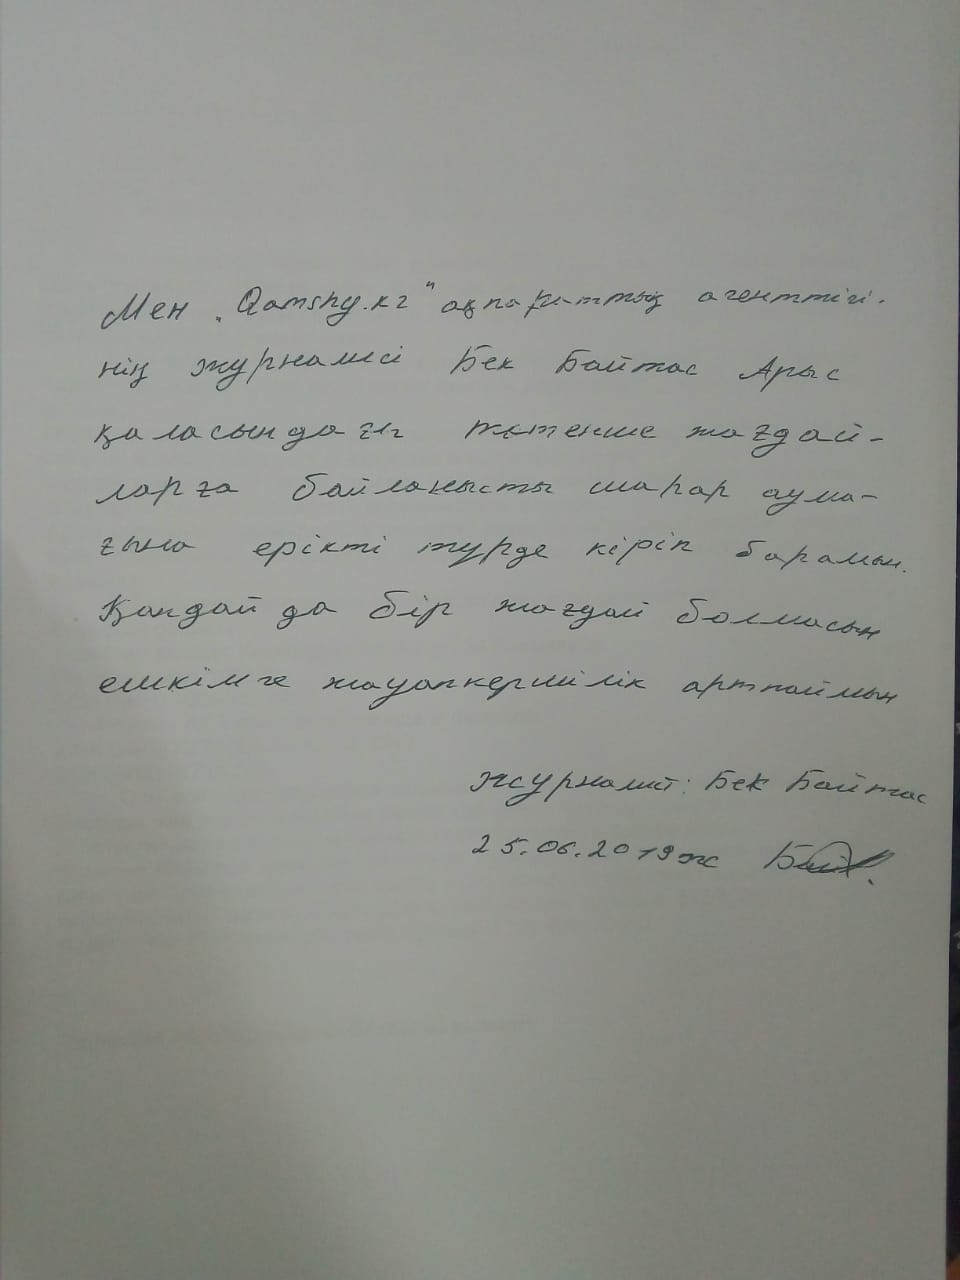 Мен „Qamshy.кг" ақпараттың агенттігі-
нің журналисі Бек Байтас Арыс
қаласындағы төтенше жағдай-
ларға байланысты шарар аума-
ғына ерікті түрде кіріп барамын.
Қандай да бір жағдай болмасын
ешкімге жауапкершілік артпаймын
журналист: Бек Байтас
25.06.2019ж